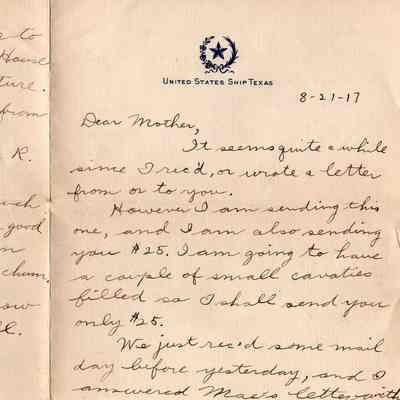 to
House
ture.
from
R.
such
good
m
chum.
ow
l.
United States Ship Texas
8-21-17
Dear Mother,
It seems quite a while
since I rec'd, or wrote a letter
from or to you.
However I am sending this
one, and I am also sending
you $25. I am going to have
a couple of small cavaties
filled so I shall send you
only $25.
We just rec'd some mail
day before yesterday, and I
answered Mae's letter with